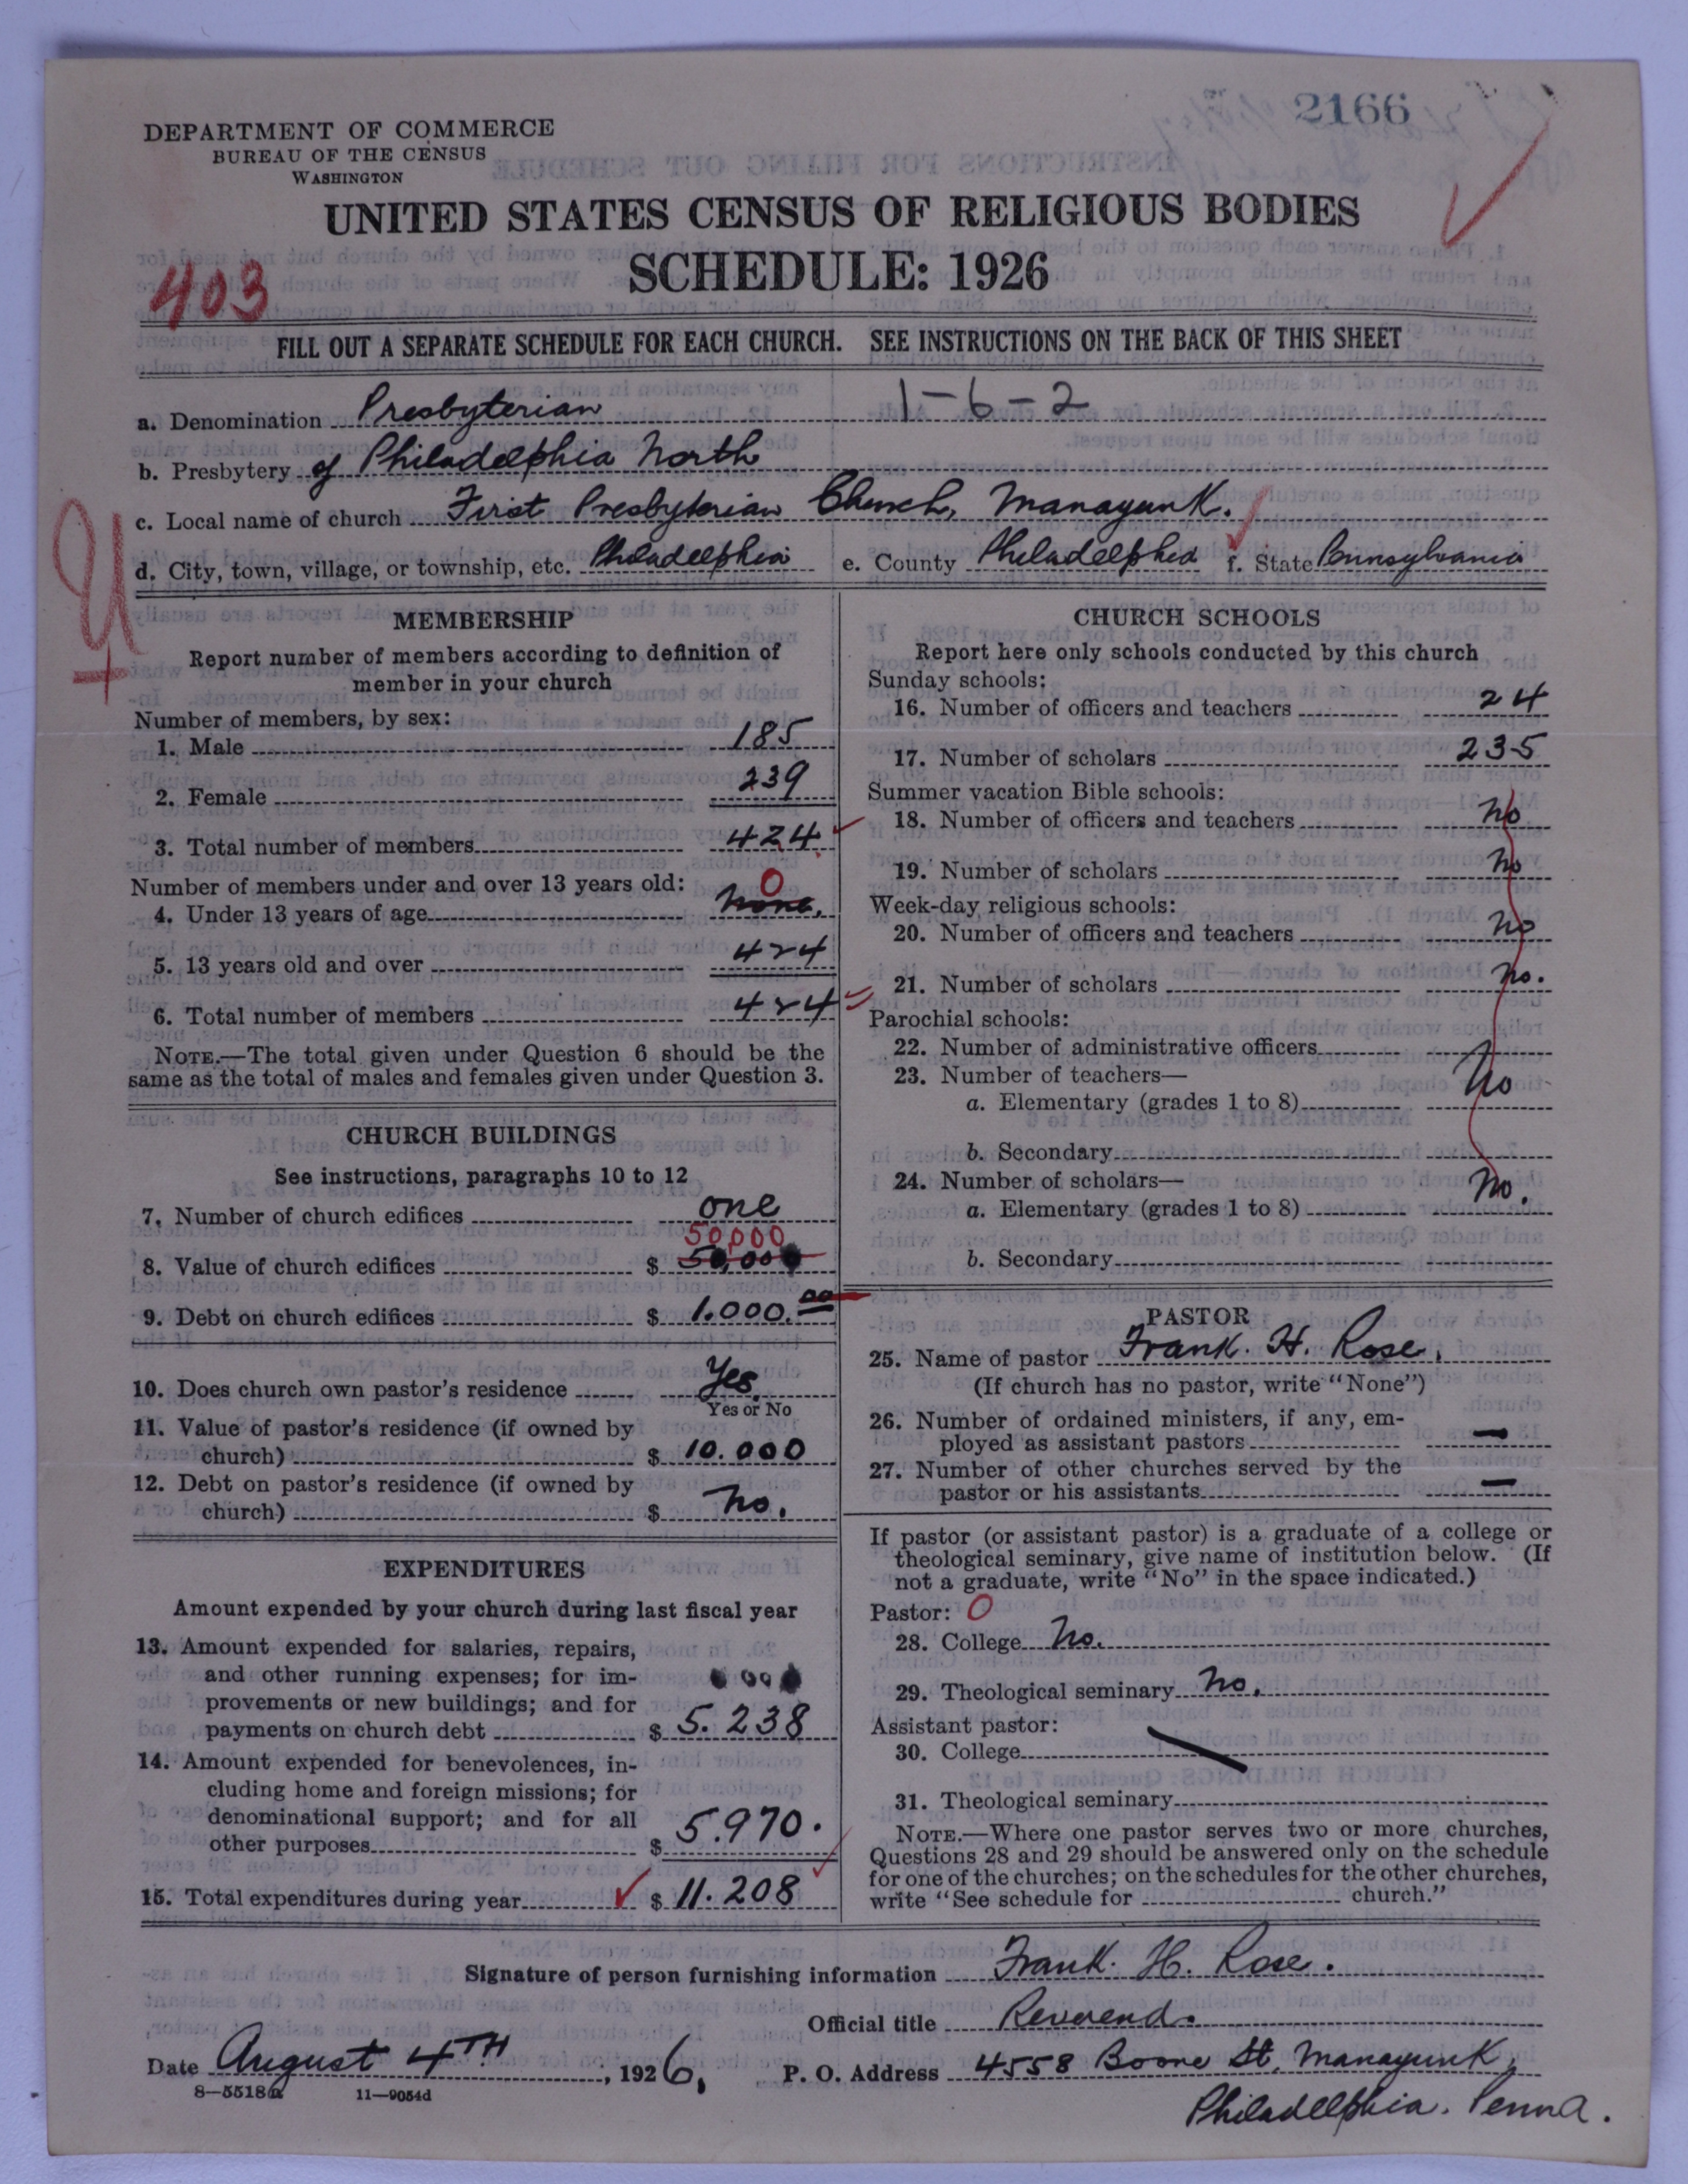 2166
DEPARTMENT OF COMMERCE
BUREAU OF THE CENSUS
WASHINGTON
UNITED STATES CENSUS OF RELIGIOUS BODIES
SCHEDULE: 1926
403
FILL OUT A SEPARATE SCHEDULE FOR EACH CHURCH. SEE INSTRUCTIONS ON THE BACK OF THIS SHEET
a. Denomination Presbyterian 1-6-2
b. Presbytery of Philadelphia North
c. Local name of church First Presbyterian Church, Manayunk.
d. City, town, village, or township, etc. Philadelphia e. County Philadelphia f. State Pennsylvania
MEMBERSHIP
Report number of members according to definition of
member in your church
Number of members, by sex:
1. Male 185
2. Female 239
3. Total number of members 424
Number of members under and over 13 years old: 0
4. Under 13 years of age none.
5. 13 years old and over 424
6. Total number of members 424
NOTE.—The total given under Question 6 should be the
same as the total of males and females given under Question 3.
CHURCH BUILDINGS
See instructions, paragraphs 10 to 12
7. Number of church edifices one
50,000
8. Value of church edifices $ 50,000
9. Debt on church edifices $ 1.000.00
10. Does church own pastor's residence Yes.
Yes or No
11. Value of pastor's residence (if owned by
church) $ 10.000
12. Debt on pastor's residence (if owned by
church) $ no.
EXPENDITURES
Amount expended by your church during last fiscal year
13. Amount expended for salaries, repairs,
and other running expenses; for im-
provements or new buildings; and for
payments on church debt $ 5.238
14. Amount expended for benevolences, in-
cluding home and foreign missions; for
denominational support; and for all
other purposes $ 5.970.
15. Total expenditures during year $ 11.208
CHURCH SCHOOLS
Report here only schools conducted by this church
Sunday schools:
16. Number of officers and teachers 24
17. Number of scholars 235
Summer vacation Bible schools:
18. Number of officers and teachers no
19. Number of scholars no
Week-day religious schools:
20. Number of officers and teachers no
21. Number of scholars no.
Parochial schools:
22. Number of administrative officers
23. Number of teachers— no
a. Elementary (grades 1 to 8)
b. Secondary
24. Number of scholars— no.
a. Elementary (grades 1 to 8)
b. Secondary
PASTOR
25. Name of pastor Frank. H. Rose.
(If church has no pastor, write "None")
26. Number of ordained ministers, if any, em-
ployed as assistant pastors —
27. Number of other churches served by the
pastor or his assistants —
If pastor (or assistant pastor) is a graduate of a college or
theological seminary, give name of institution below. (If
not a graduate, write "No" in the space indicated.)
Pastor: 0
28. College no.
29. Theological seminary no.
Assistant pastor:
30. College
31. Theological seminary
NOTE.—Where one pastor serves two or more churches,
Questions 28 and 29 should be answered only on the schedule
for one of the churches; on the schedules for the other churches,
write "See schedule for church."
Signature of person furnishing information Frank. H. Rose.
Official title Reverend.
Date August 4TH, 1926, P. O. Address 4558 Boone St. Manayunk,
Philadelphia. Penna.
8—5518a 11—9054d